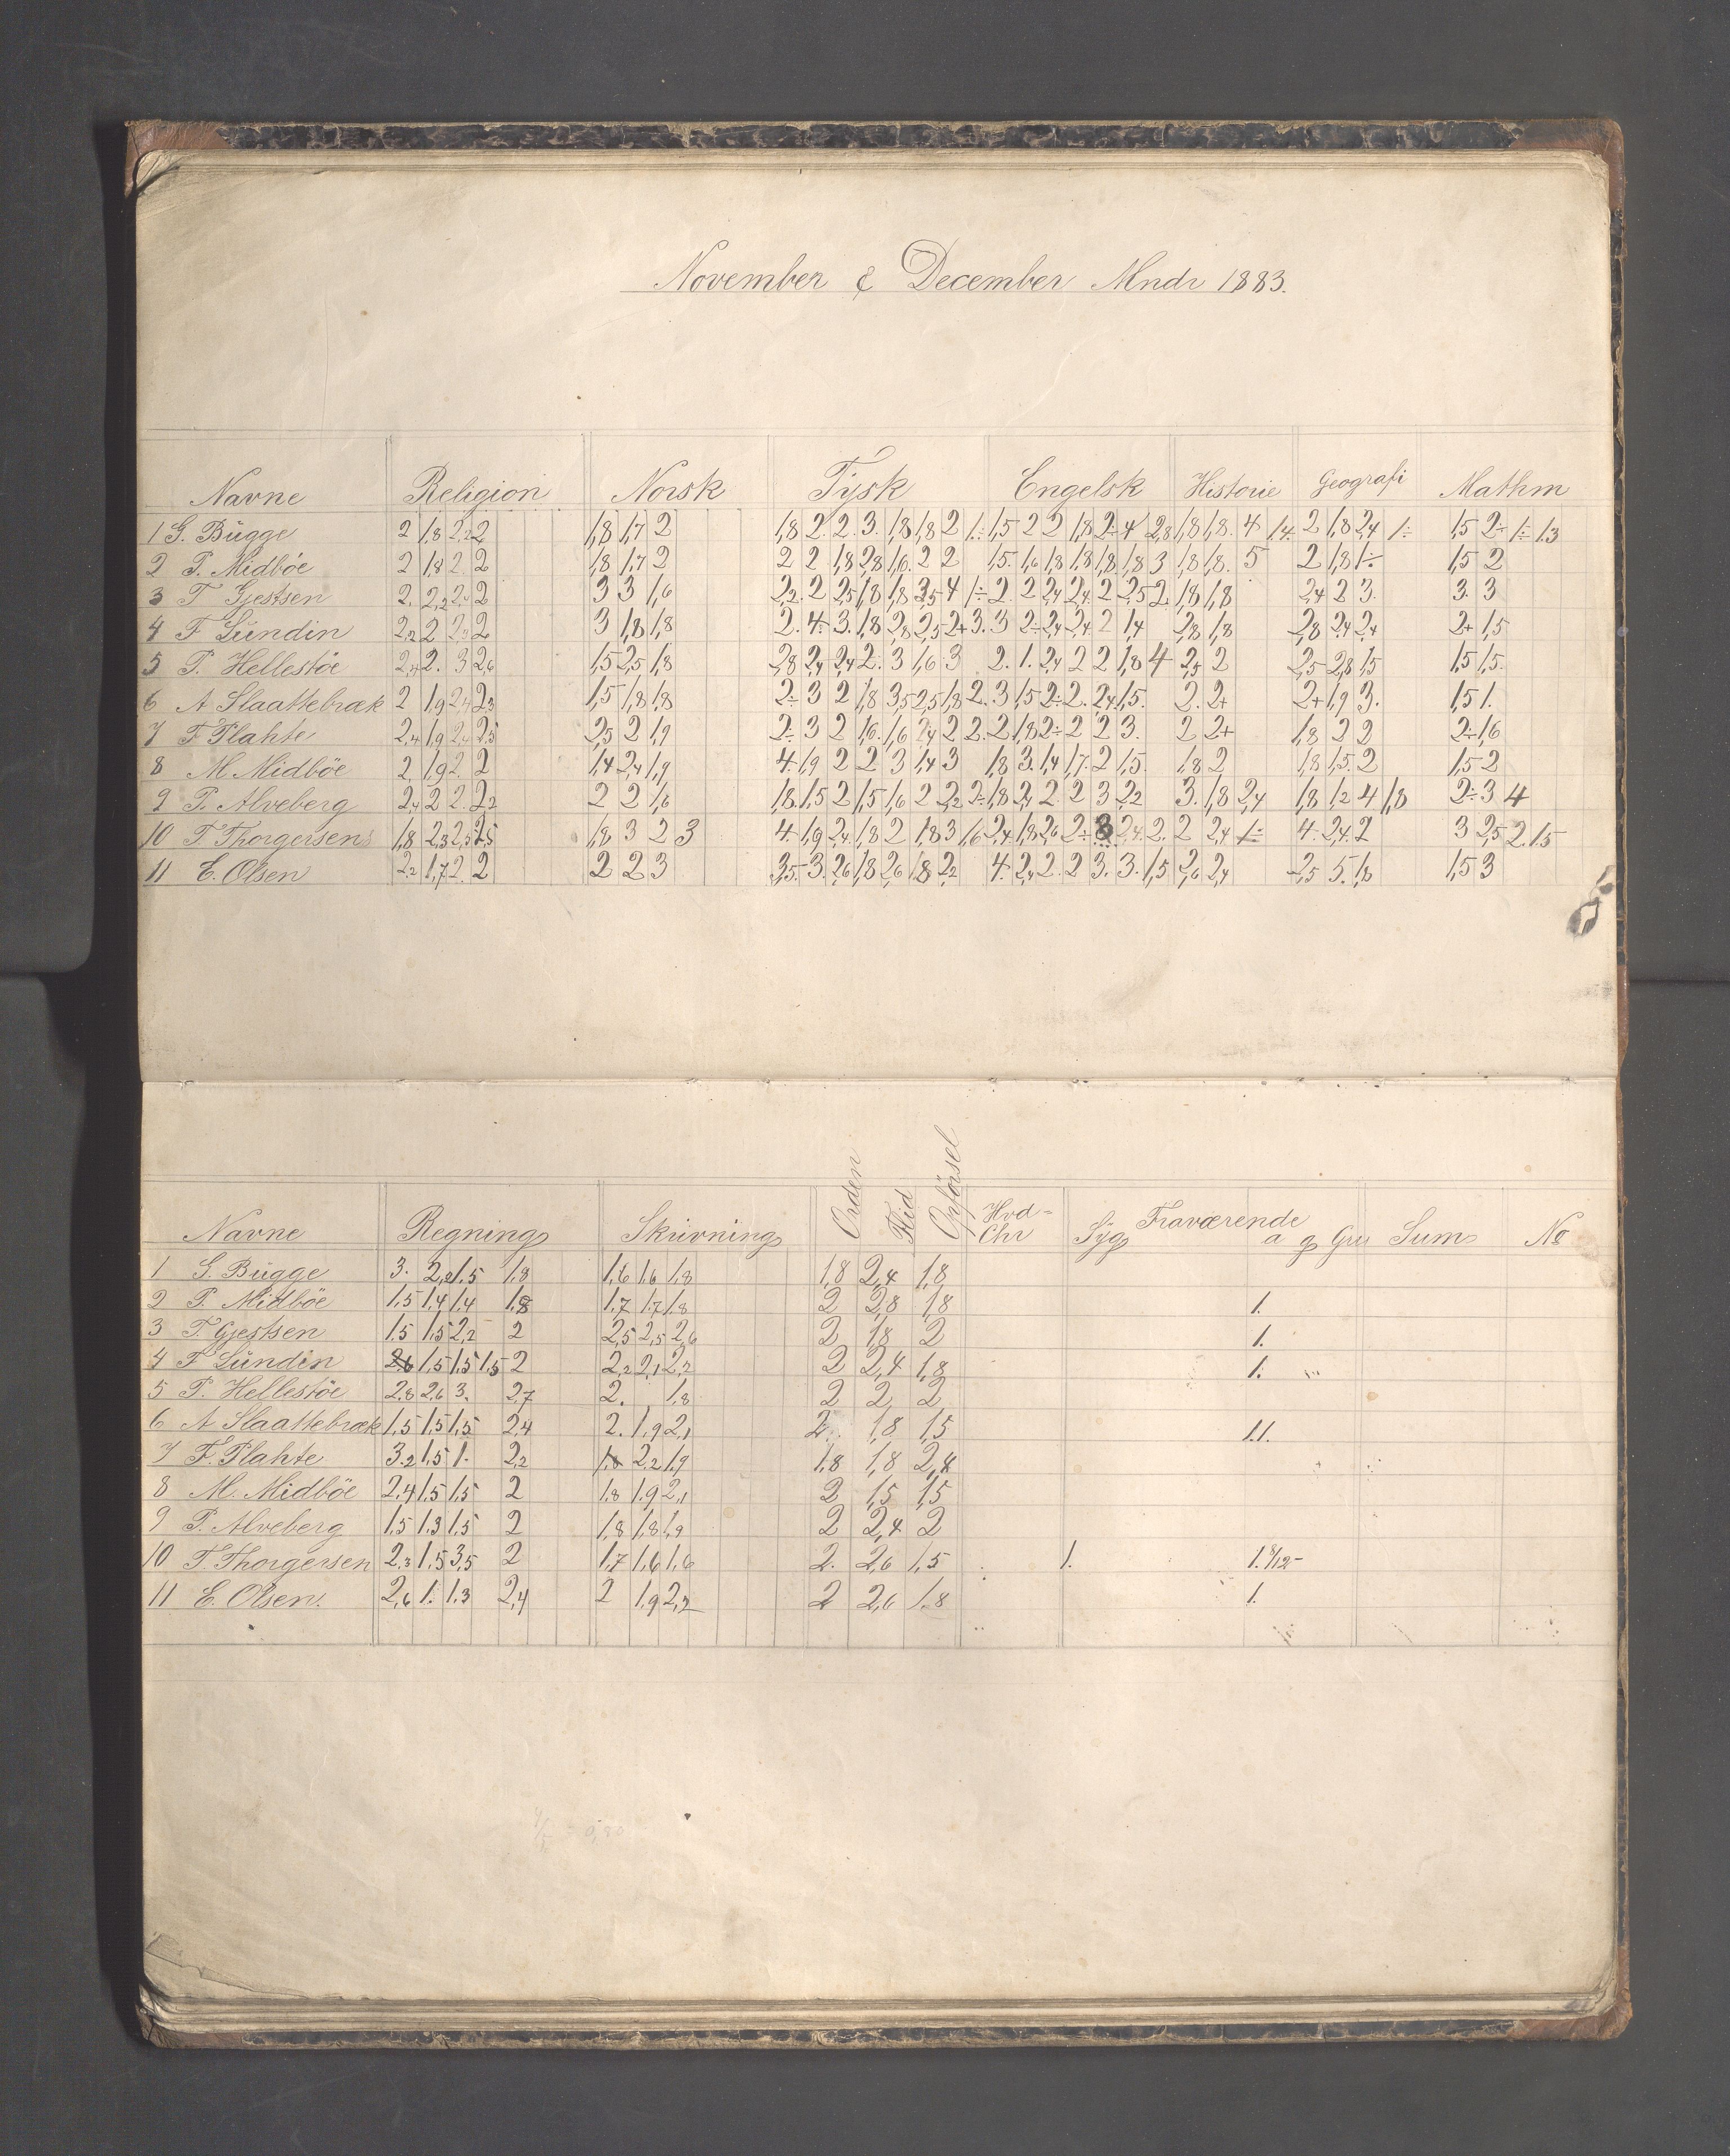 November & December Mndr 1883.
Navne Religion Norsk Tysk Engelsk Historie Geografi Mathm
1 G. Bügge 2 1,8 2,2 2 1,8 1,7 2 1,8 2. 2. 3. 1,8 1,8 2 1÷ 1,5 2 2 1,8 2÷ 4 2,8 1,8 1,8. 4 1,4÷ 2 1,8 2,4 1÷ 1,5 2÷ 1÷ 1.3
2 P. Midböe 2 1,8 2. 2 1,8 1,7 2 2 2 1,8 2,8 1,6. 2 2 1.5. 1,6 1,8 1,8 1,8 1,8 3 1,8 1,8. 5 2 1,8 1÷ 1,5 2
3 T Gjestsen 2. 2,2 2,4 2 3 3 1,6 2,2. 2 2,5 1,8 1,8 3,5 4 1÷ 2. 2 2,4 2,4. 2 2,5 2. 1,8 1,8 2,4 2 3. 3. 3
4 F Lündin 2,2 2 2,3 2 3 1,8 1,8 2. 4÷ 3. 1,8 2,8 2,5 2+ 3. 3 2÷ 2,4 2,4. 2 1,4 2,8 1,8 2,8 2,4 2,4 2+ 1,5
5 P. Hellestöe 2,4 2. 3 2,6 1,5 2,5 1,8 2,8 2,4 2,4 2. 3 1,6 3 2. 1. 2,4 2 2 1,8 4 2,5 2 2,5 2,8 1,5 1,5 1,5.
6 A Slaattebræk 2 1,9 2,4 2,3 1,5 1,8 1,8 2÷ 3 2 1,8 3,5 2,5 1,8 2. 3 1,5 2÷ 2. 2,4 1,5. 2. 2+ 2+ 1,9 3. 1,5 1.
7 F Plahte 2,4 1,9 2,4 2,5 2,5 2 1,9 2÷ 3 2 1,6. 1,6 2,4 2 2. 2 1,8 2÷ 2 2 3. 2 2+ 1,8 2 2 2÷ 1,6
8 M Midböe 2. 1,9 2. 2 1,4 2,4 1,9 4. 1,9 2 2 3 1,4 3 1,8 3. 1,4 1,7. 2 1,5. 1,8 2 1,8 1,5. 2 1,5 2
9 P. Alveberg 2,4 2 2. 2,2 2 2 1,6 1,8. 1,5 2 1,5 1,6 2 2,2 2÷ 1,8 2,4 2. 2 3 2,2 3. 1,8 2,4 1,8 1,2 4 1,8 2÷ 3 4
10 T. Thorgersen 1,8 2,3 2,3 2,5 1,8 3 2 3 4. 1,9 2,4 1,8 2 1,8 3 1,6 2,4 1,8 2,6 2÷ 3 2,4. 2. 2 2,4 1÷ 4. 2,4. 2 3 2,5 2. 1.5
11 E. Olsen 2,2 1,7 2. 2 2 2 3 3,5. 3. 2,6 1,8 2,6 1,8 2,2 4. 2,4 2. 2 3. 3. 1,5 2,6 2,4 2,5 5. 1,8 1,5 3
Navne Regning Skrivning Orden Flid Opförsel Hvd=Chr Syg Fraværende a g Gru Sum No
1 G. Bügge 3. 2,2 1.5 1,8 1,6 1,6 1,8 1,8 2,4 1,8
2 P. Midböe 1,5 1,4 1,4 1,8 1,7 1.7 1,8 2 2,8 1,8 1.
3 T. Gjestsen 1,5 1,5 2,2 2 2,5 2,5 2,6 2 1,8 2 1.
4 F Lündin 2,6 1,5 1,5 1,5 2 2,2 2,1 2,2 2 2,4 1,8 1.
5 P. Hellestöe 2,8 2,6 3. 2,7 2. 1,8 2 2 2
6 A Slaattebræk 1,5 1,5 1,5 2,4 2. 1,9 2,1 2. 1,8 1,5 1.1.
7 F. Plahte 3,2 1,5 1. 2,2 1,8 2,2 1,9 1,8 1,8 2,4
8 M. Midböe 2,4 1,5 1,5 2 1,8 1,9 2,1 2 1,5 1,5
9 P. Alveberg 1,5 1.3 1,5 2 1,8 1,8 1,9 2 2,4 2
10 T. Thorgersen 2,3 1,5 3,5 2 1,7 1,6 1,6 2. 2,6 1,5 1. 1. 8/12-
11 E. Olsen. 2,6 1. 1,3 2,4 2 1,9 2,2 2 2,6 1.8 1.